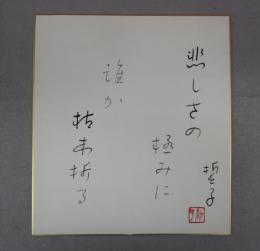 悲しさの
極みに
誰か
枯木折る
哲子